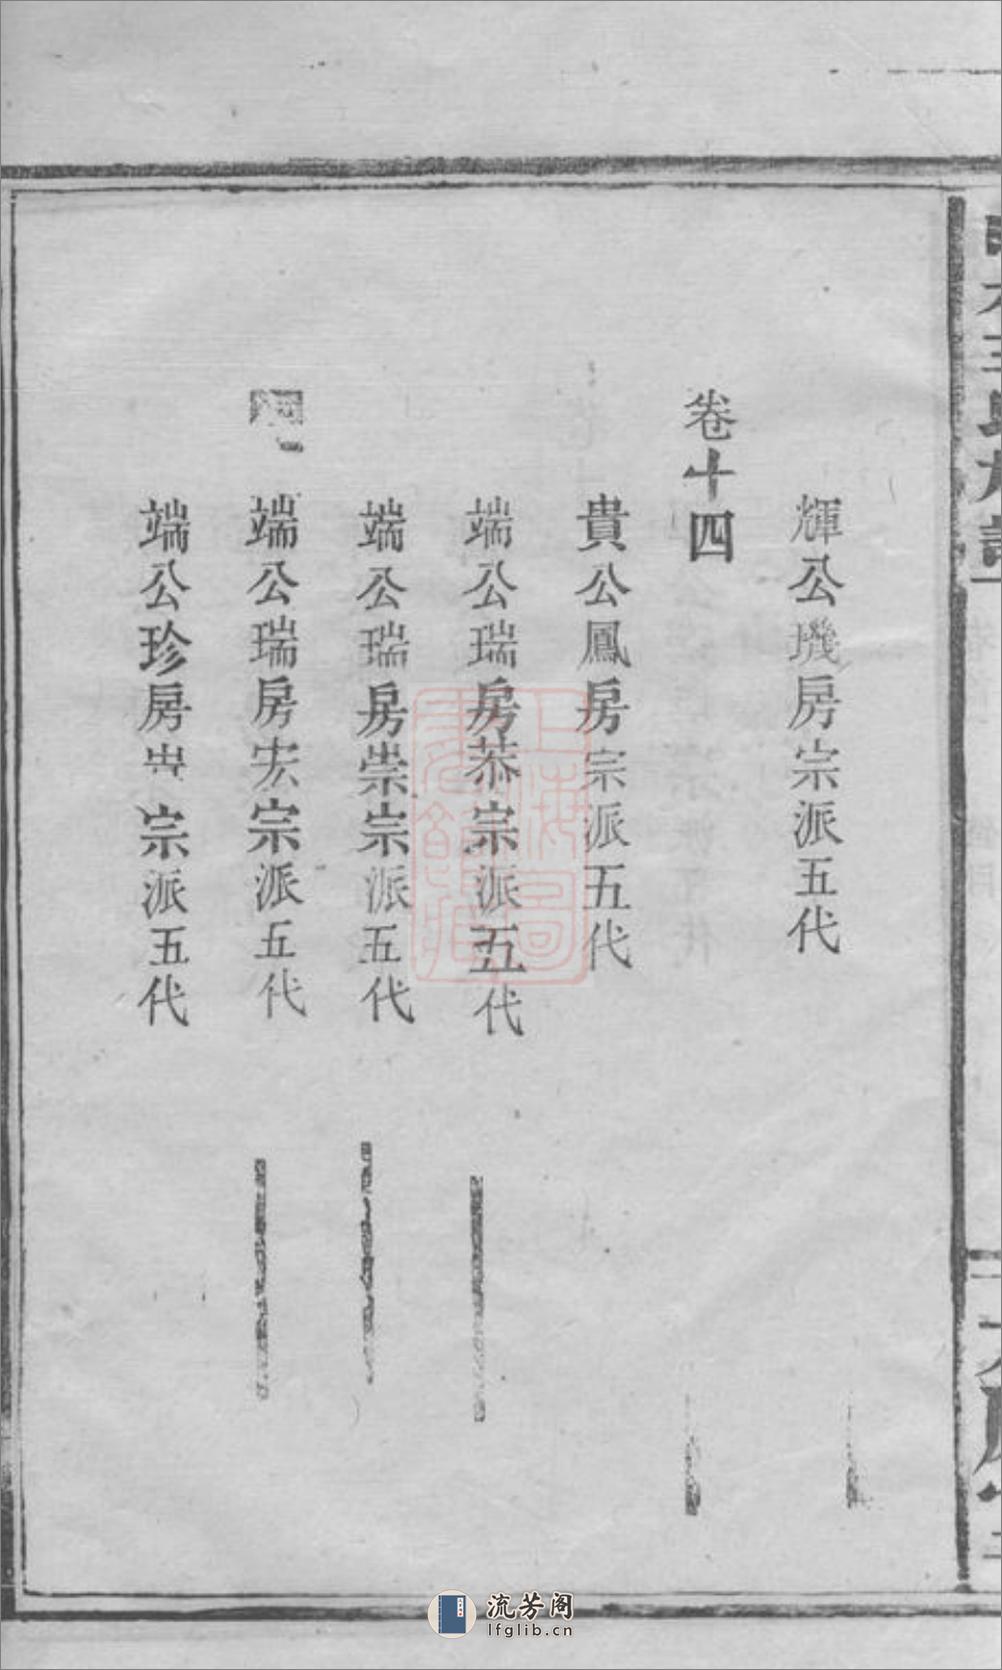 輝公璣房宗派五代
卷十四
貴公鳳房宗派五代
端公瑞房恭宗派五代
端公瑞房崇宗派五代
端公瑞房宏宗派五代
端公珍房宗派五代
上海圖書館藏
流芳阁
lfglib.cn